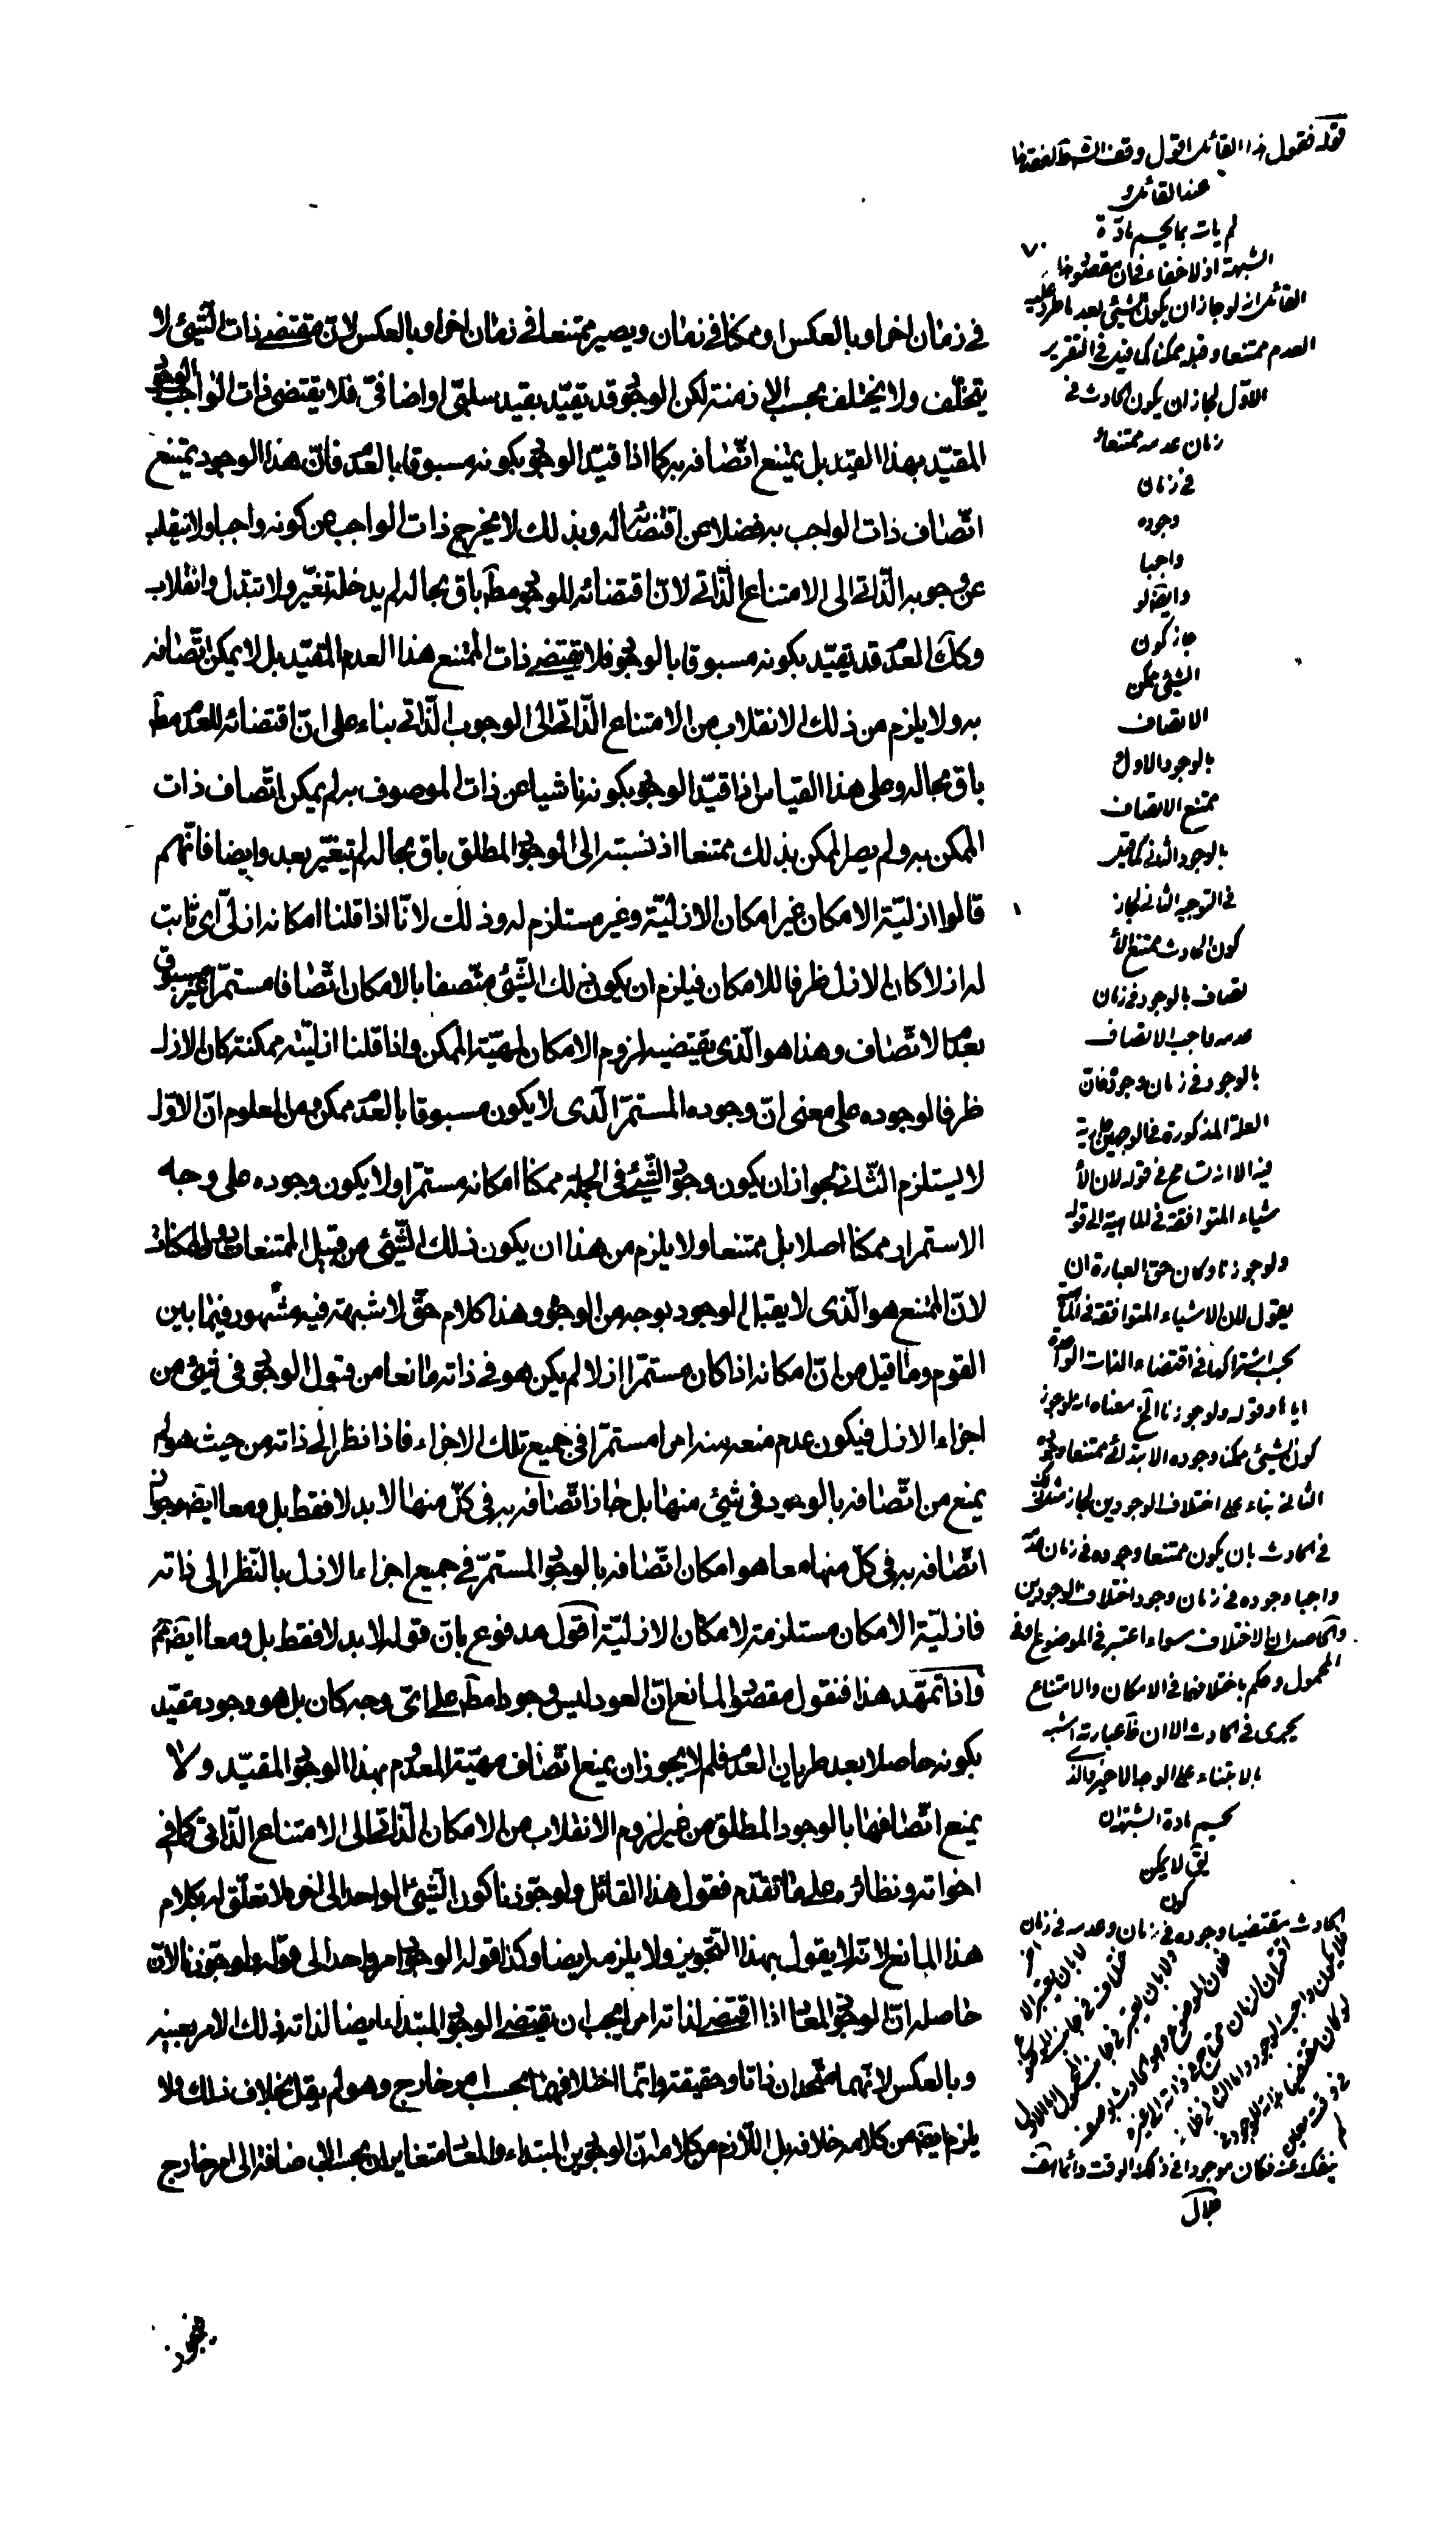 في زمان اخر او بالعكس او ممكنا في زمان ويصير ممتنعا في زمان اخر او بالعكس لانّ مقتضى ذات الشّيئ لا
يتخلّف ولا يختلف بحسب الازمنة لكن الوجود قد يقيّد بقيد سلبيّ او اضافيّ فلا يقتضي ذات الواجب الوجود
المقيّد بهذا القيد بل يمتنع اتّصافه به كما اذا قيّد الوجود بكونه مسبوقا بالعدم فانّ هذا الوجود يمتنع
اتّصاف ذات الواجب به فضلا عن اقتضائه له وبذلك لا يخرج ذات الواجب عن كونه واجبا ولا ينقلب
عن وجوبه الذّاتي الى الامتناع الذّاتي لانّ اقتضائه للوجود مط باق بحاله لم يدخله تغيّر ولا تبدّل وانقلاب
وكك العدم قد يقيّد بكونه مسبوقا بالوجود فلا يقتضي ذات الممتنع هذا العدم المقيّد بل لا يمكن اتّصافه
به ولا يلزم من ذلك الانقلاب من الامتناع الذّاتي الى الوجوب الذّاتي بناء على انّ اقتضائه للعدم مط
باق بحاله وعلى هذا القياس اذا قيّد الوجود بكونه ناشيا عن ذات الموصوف به لم يمكن اتّصاف ذات
الممكن به ولم يصر الممكن بذلك ممتنعا اذ نسبته الى الوجود المطلق باق بحاله لم يتغيّر بعد وايضا فانّهم
قالوا ازليّة الامكان غير امكان الازليّة وغير مستلزم له وذلك لانّا اذا قلنا امكانه ازليّ اي ثابت
له ازلا كان الازل ظرفا للامكان فيلزم ان يكون ذلك الشّيئ متّصفا بالامكان اتّصافا مستمرّا غير مسبوق
بعدم الاتّصاف وهذا هو الّذي يقتضيه لزوم الامكان لمهيّة الممكن واذا قلنا ازليّته ممكنة كان الازل
ظرفا لوجوده على معنى انّ وجوده المستمرّ الّذي لا يكون مسبوقا بالعدم ممكن ومن المعلوم انّ الاوّل
لا يستلزم الثّاني لجواز ان يكون وجود الشّيئ في الجملة ممكنا امكانه مستمرّا ولا يكون وجوده على وجه
الاستمرار ممكنا اصلا بل ممتنعا ولا يلزم من هذا ان يكون ذلك الشّيئ من قبيل الممتنعات دون الممكنات
لانّ الممتنع هو الّذي لا يقبل الوجود بوجه من الوجوه وهذا كلام حقّ لا شبهة فيه مشهور فيما بين
القوم وما قيل من انّ امكانه اذا كان مستمرّا ازلا لم يكن هو في ذاته مانعا من قبول الوجود في شيئ من
اجزاء الازل فيكون عدم منعه منه امرا مستمرّا في جميع تلك الاجزاء فاذا نظر الى ذاته من حيث هو لم
يمنع من اتّصافه بالوجود في شيئ منها بل جاز اتّصافه به في كلّ منها لا بدلا فقط بل ومعا ايضا وجواز
اتّصافه به في كلّ منها معا هو امكان اتّصافه بالوجود المستمرّ في جميع اجزاء الازل بالنّظر الى ذاته
فازليّة الامكان مستلزمة لامكان الازليّة اقول مدفوع بانّ قوله لا بدلا فقط بل ومعا ايضا مم
واذا تمهّد هذا فنقول مقصود المانع انّ العود ليس وجودا مط على ايّ وجه كان بل هو وجود مقيّد
بكونه حاصلا بعد طريان العدم فلم لا يجوز ان يمنع اتّصاف مهيّة المعدوم بهذا الوجود المقيّد ولا
يمنع اتّصافها بالوجود المطلق من غير لزوم الانقلاب من الامكان الذّاتي الى الامتناع الذّاتي كما في
اخواته ونظائره على ما تقدّم فقول هذا القائل ولو جوّزنا كون الشّيئ الواحد الى اخره لا تعلّق له بكلام
هذا المانع لانّه لا يقول بهذا التّجويز ولا يلزمه ايضا وكذا قوله الوجود امر واحد الى قوله ولو جوّزنا لانّ
حاصله انّ الوجود المعاد اذا اقتضى لذاته امرا يجب ان يقتضي الوجود المبتداء ايضا لذاته ذلك الامر بعينه
وبالعكس لانّهما متّحدان ذاتا وحقيقة وانّما اختلافهما بحسب امر خارج وهو لم يقل بخلاف ذلك ولا
يلزم ايضا من كلامه خلافه بل اللّازم من كلامه انّ الوجودين المبتداء والمعاد متغايران بحسب الاضافة الى امر خارج
قوله فقول هذا القائل اقول
عند القائل و
لم يات بما يحسم مادّة
الشبهة اذ لا خفاء في ان مقصود هذا
القائل انه لو جاز ان يكون الشيئ بعد ما طرء عليه
العدم ممتنعا وقبله ممكنا كما قيد في التقرير
الاوّل لجاز ان يكون الحادث في
زمان عدمه ممتنعا و
في زمان
وجوده
واجبا
وايضا لو
جاز كون
الشيئ ممكن
الاتصاف
بالوجود الاول و
ممتنع الاتصاف
بالوجود الثاني كما قيد
في التوجيه الثاني لجاز
كون الحادث ممتنع الا
تصاف بالوجود في زمان
عدمه واجب الاتصاف
بالوجود في زمان وجوده فان
العلة المذكورة في الوجهين جارية
فيه الا انه تسامح في قوله لان الا
شياء المتوافقة في الماهية الى قوله
ولو جوزنا وكان حق العبارة ان
يقول لان الاشياء المتوافقة في الماهية
يجب اشتراكها في اقتضاء الذات الواحدة
اياها وقوله ولو جوزنا الخ معناه انه لو جوز
كون الشيئ ممكنا وجوده الابتدائي ممتنعا وجوده
الثاني بناء على اختلاف الوجودين لجاز مثل ذلك
في الحادث بان يكون ممتنعا وجوده في زمان عدمه
واجبا وجوده في زمان وجوده لاختلاف الوجودين
والحاصل ان الاختلاف سواء اعتبر في الموضوع او في
المحمول وحكم باختلافهما في الامكان والامتناع
يجري في الحادث الا ان عبارته اشبه
بالابتناء على الوجه الاخير فالذي
يحسم مادة الشبهة ان
يقال لا يمكن
كون
الحادث مقتضيا وجوده في زمان وعدمه في زمان
اخر
ينفك عنه فكان موجودا في ذلك الوقت دائما هف
جلال